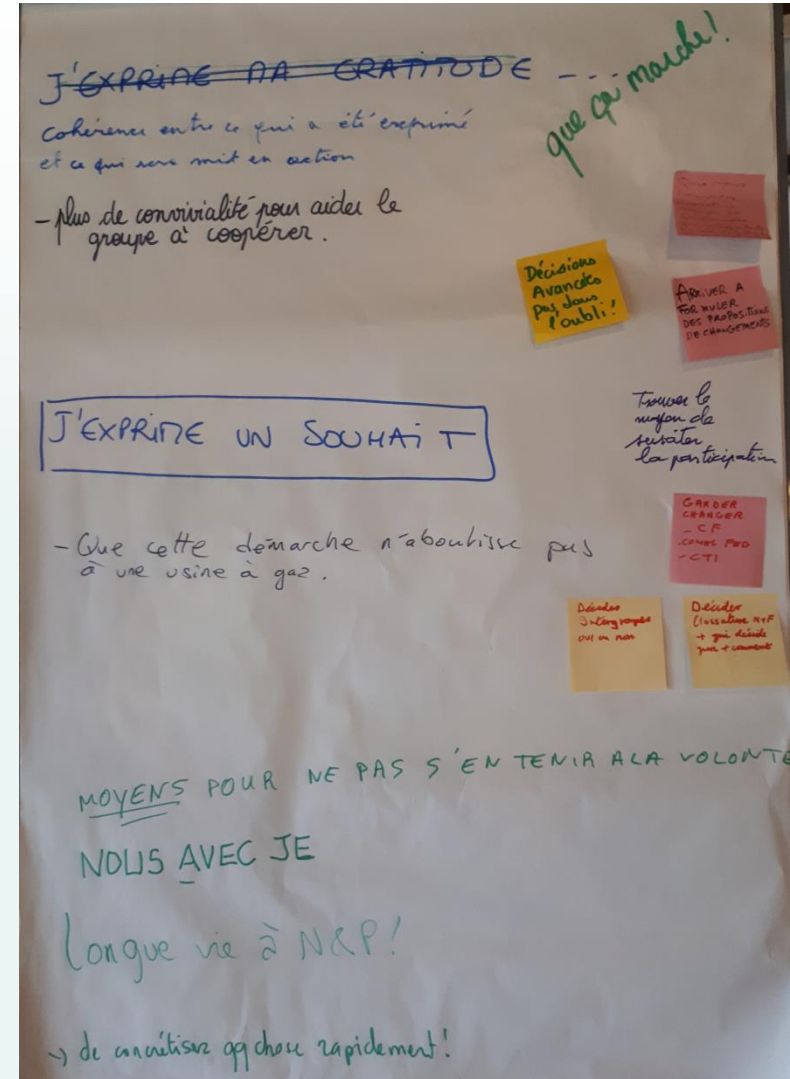 J'EXPRIME MA GRATITUDE ....
que ça marche!
Cohérence entre ce qui a été exprimé
et ce qui sera mit en action
- plus de convivialité pour aider le
groupe à coopérer.
Décisions
Avancées
pas dans
l'oubli!
ARRIVER A
FORMULER
DES PROPOSITIONS
DE CHANGEMENTS
J'EXPRIME UN SOUHAIT
Trouver le
moyen de
susciter
la participation
- Que cette démarche n'aboutisse pas
à une usine à gaz.
GARDER
CHANGER
- CF
- CTI
Décider
Intergroupes
oui ou non
Décider
+ qui décide
quoi + comment
MOYENS POUR NE PAS S'EN TENIR A LA VOLONTE
NOUS AVEC JE
Longue vie à N&P!
→ de concrétiser qq chose rapidement!